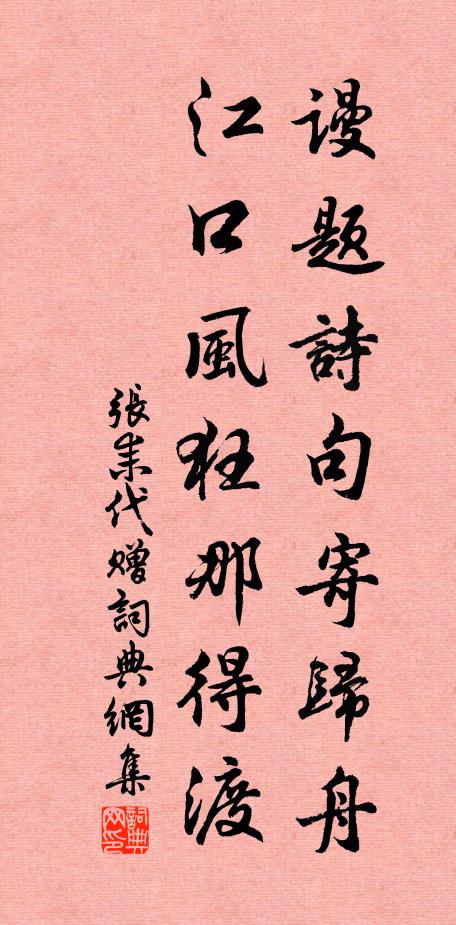 謾題詩句寄歸舟
江口風狂那得渡
張耒代贈詞典網集
詞典网印